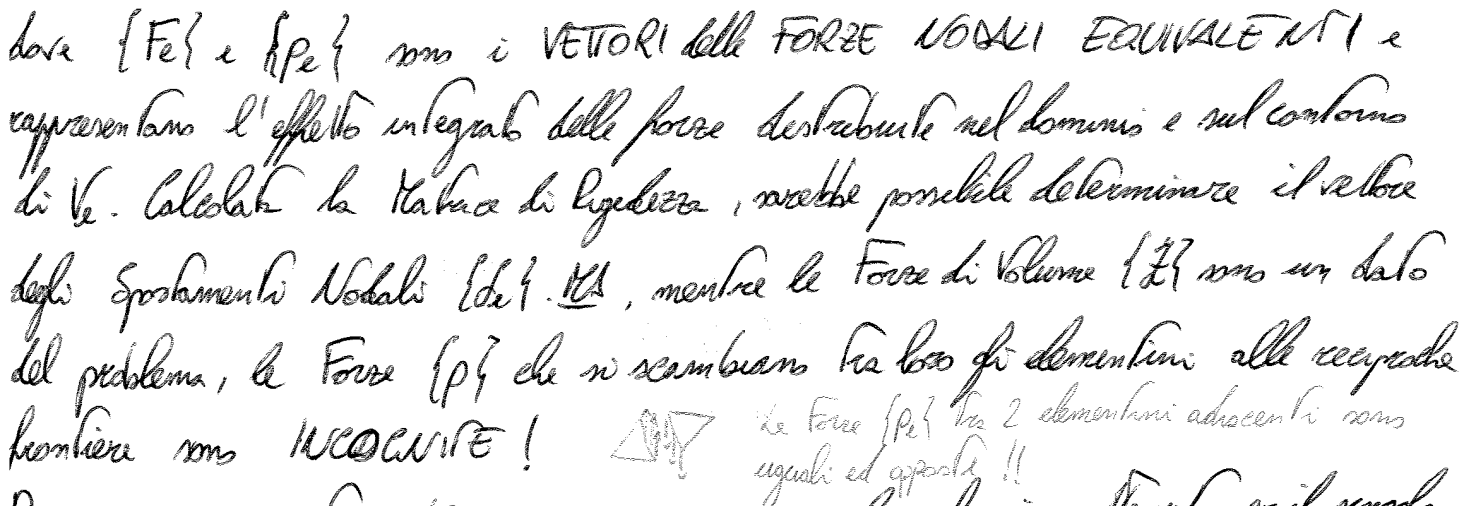 dove {Fe} e {pe} sono i VETTORI delle FORZE NODALI EQUIVALENTI e
rappresentano l'effetto integrato delle forze distribuite nel dominio e sul contorno
di Ve. Calcolata la Matrice di Rigidezza, sarebbe possibile determinare il vettore
degli Spostamenti Nodali {de}. MA, mentre le Forze di Volume {Z} sono un dato
del problema, le Forze {p} che si scambiano tra loro gli elementini alle reciproche
frontiere sono INCOGNITE!
Le Forze {pe} tra 2 elementini adiacenti sono
uguali ed opposte!!